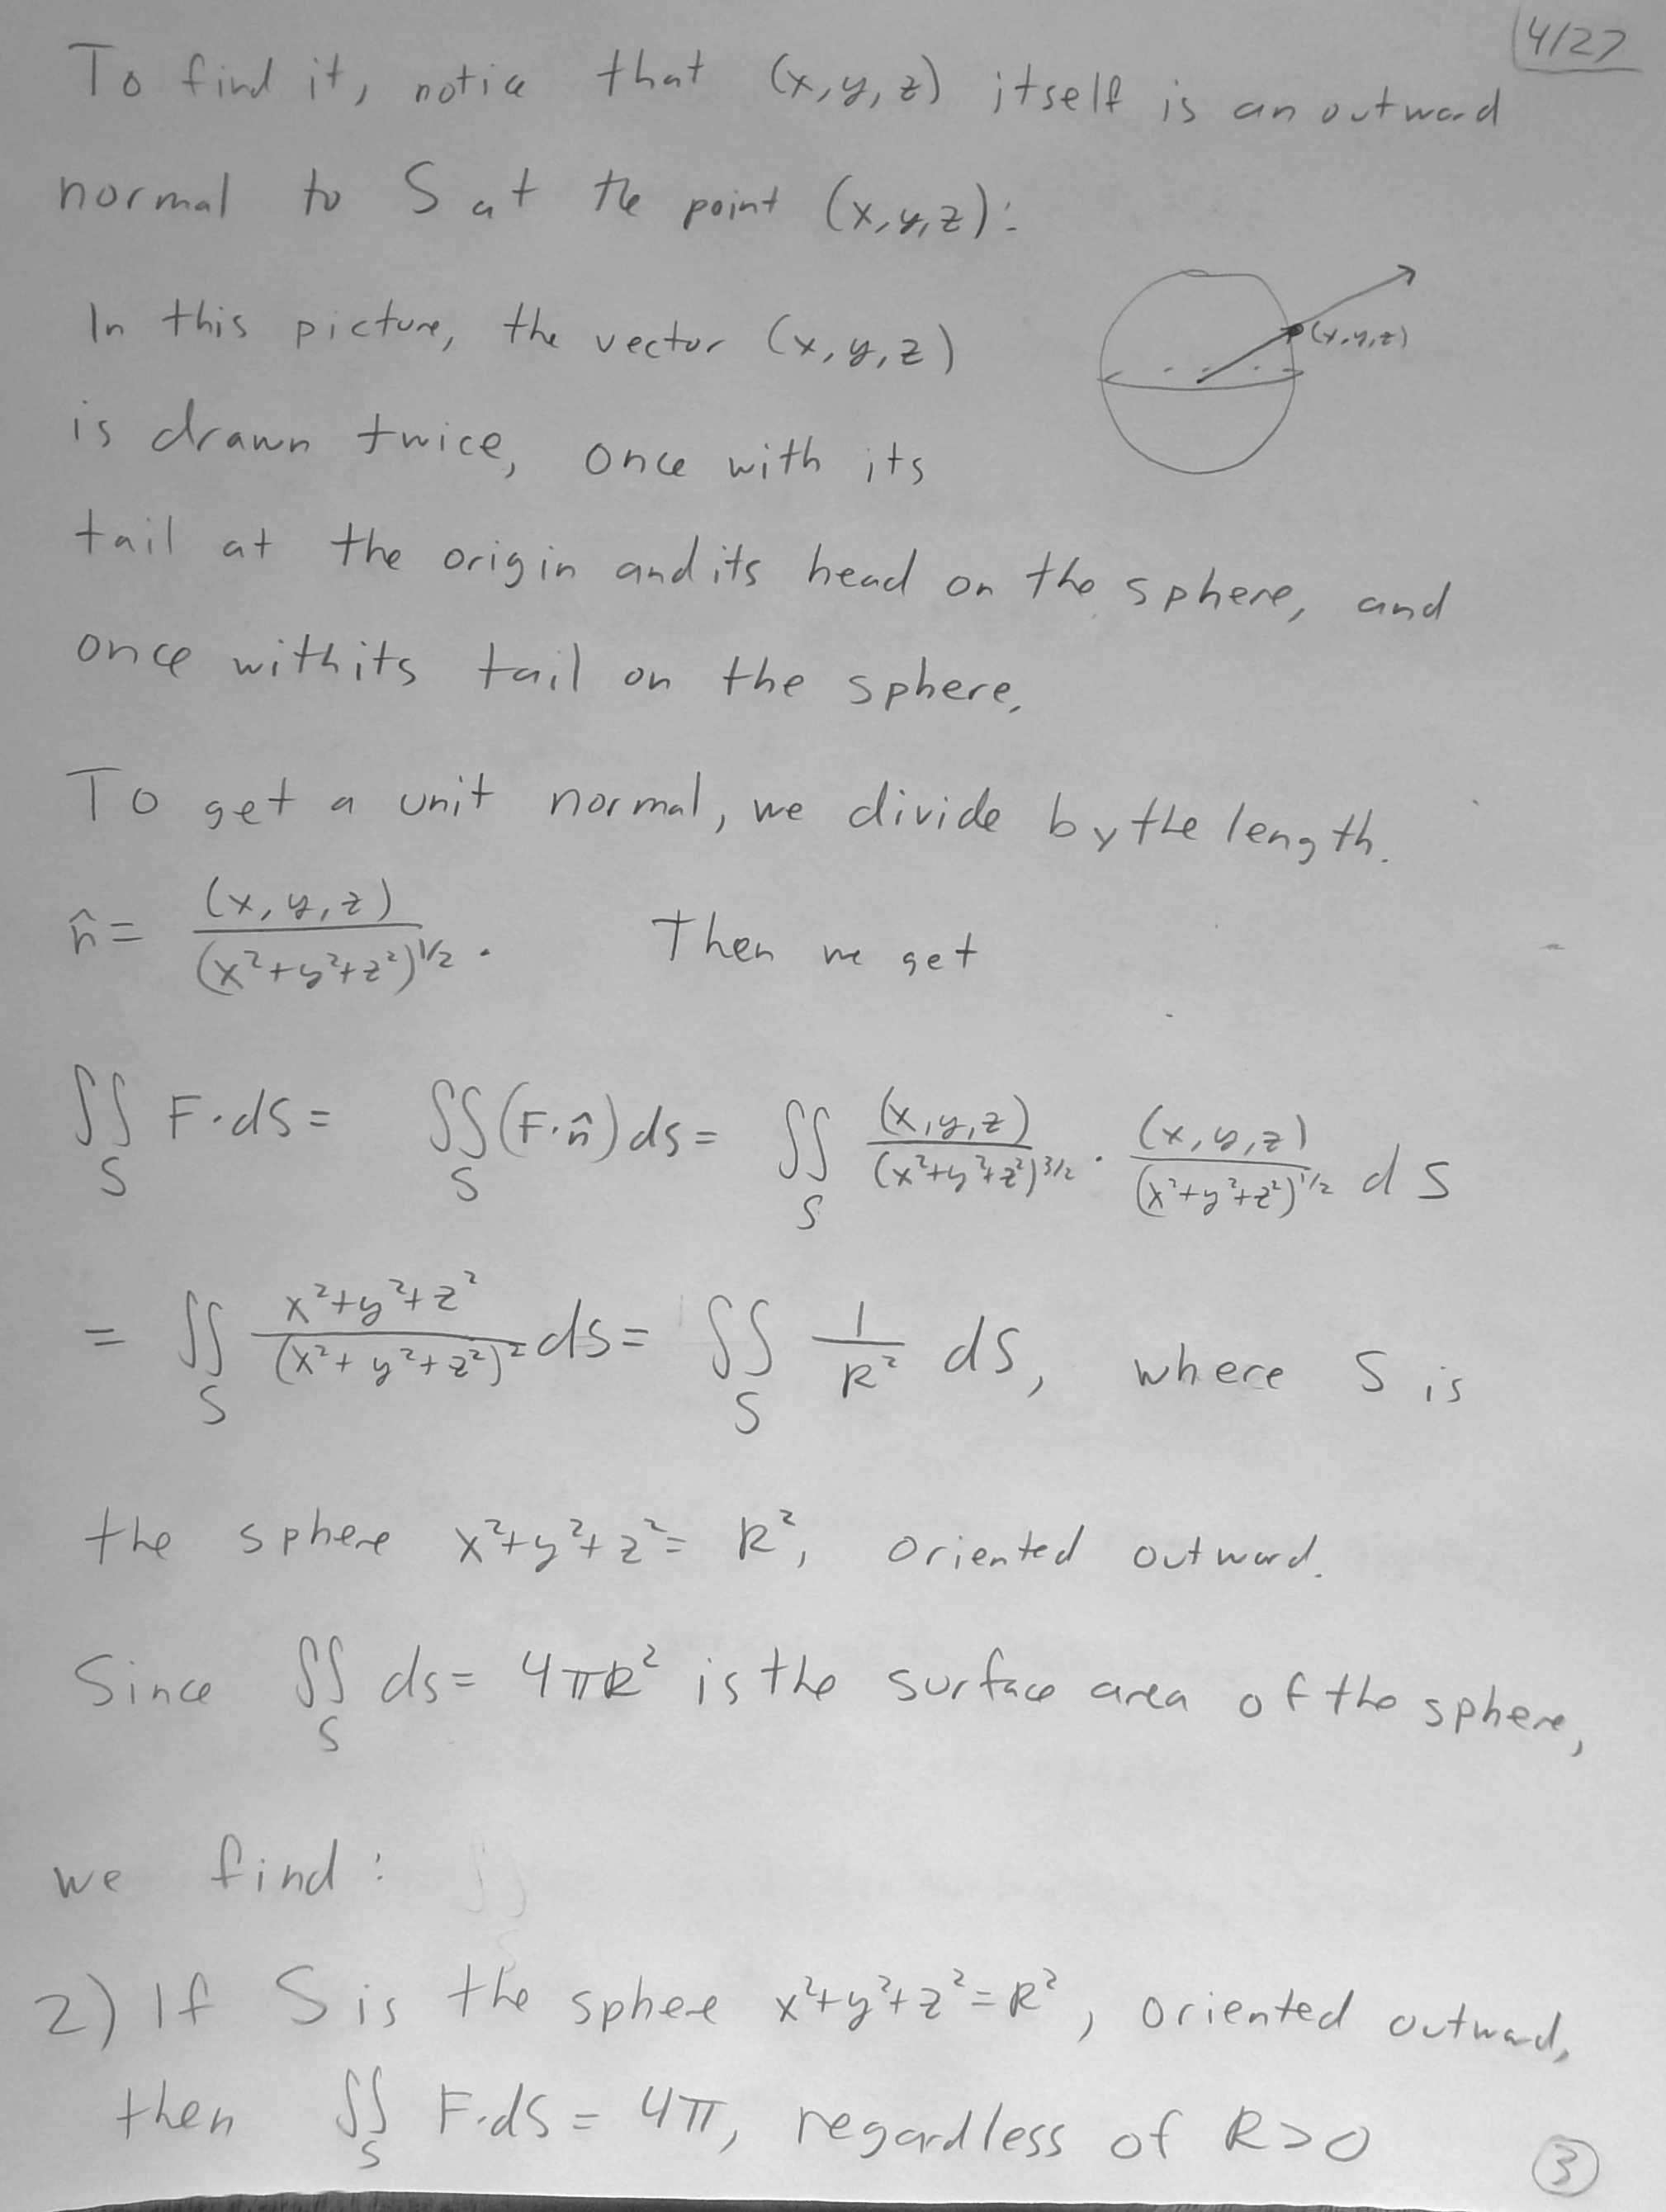 4/27
To find it, notice that (x,y,z) itself is an outward
normal to S at the point (x,y,z):
In this picture, the vector (x,y,z)
(x,y,z)
is drawn twice, once with its
tail at the origin and its head on the sphere, and
once with its tail on the sphere.
To get a unit normal, we divide by the length.
n̂ = (x,y,z)/(x²+y²+z²)^1/2. Then we get
∬_S F·dS = ∬_S (F·n̂) dS = ∬_S (x,y,z)/(x²+y²+z²)^3/2 · (x,y,z)/(x²+y²+z²)^1/2 dS
= ∬_S x²+y²+z²/(x²+y²+z²)² dS = ∬_S 1/R² dS, where S is
the sphere x²+y²+z²= R², oriented outward.
Since ∬_S dS = 4πR² is the surface area of the sphere,
we find:
2) If S is the sphere x²+y²+z²=R², oriented outward,
then ∬_S F·dS = 4π, regardless of R>0
3